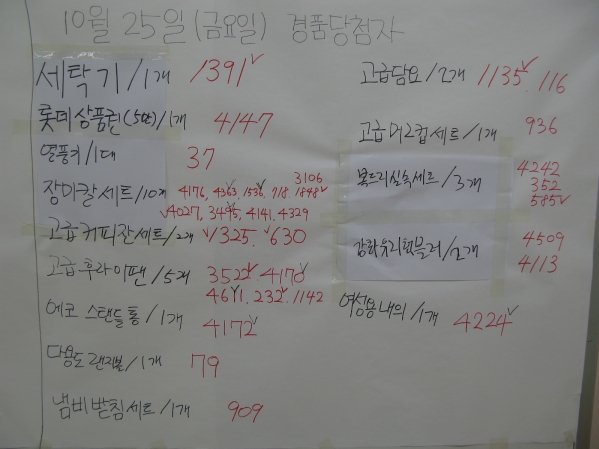 10월 25일 (금요일) 경품당첨자
세탁기/1개 1391
롯데상품권(5만)/1개 4147
열풍기/1대 37
3106
장미칼세트/10개 4176, 4363, 1536, 718, 1848
4027, 3495, 4141, 4329
고급커피잔세트/2개 1325, 630
고급후라이팬/5개 3522 4170
4671, 232, 1142
에코 스탠들통/1개
4172
다용도랜지볼/1개 79
냄비받침세트/1개 909
고급담요/2개 1135, 116
고급머그컵세트/1개 936
4242
본드리실속세트/3개 352
585
강화유리텀블러/2개 4509
4113
여성용내의/1개 4224